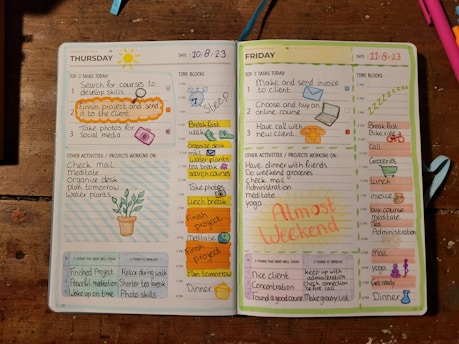 THURSDAY
DATE: 10.8.23
TOP 3 TASKS TODAY:
1 Search for courses to
develop skills
2 Finish project and send
it to the client
3 Take photos for
social media
OTHER ACTIVITIES / PROJECTS WORKING ON:
Check mail
Meditate
Organise desk
plan tomorrow
Water plants
TIME BLOCKS
SLEEP
Breakfast
walk
Organise desk
mail
Water plants
tea break
search courses
Take photos
Lunch break
Finish
project
Meditate
Finish
project
Plan tomorrow
Dinner
Finished Project
Peaceful meditation
Woke up on time
Relax during walk
Shorter tea break
Photo skills
FRIDAY
DATE: 11.8.23
TOP 3 TASKS TODAY:
1 Make and send invoice
to client
2 Choose and buy an
online course
3 Have call with
new client
OTHER ACTIVITIES / PROJECTS WORKING ON:
Have dinner with friends
Do weekend groceries
check mail
Administration
meditate
yoga
Almost
Weekend
TIME BLOCKS
zzzzzzz
Breakfast
Bike ride
Call
Groceries
Lunch
invoice
buy course
meditate
Tea
Administration
mail
yoga
Get ready
Dinner
Nice client
Concentration
Found a good course
keep up with
administration
Check connection
before call
Make grocery list